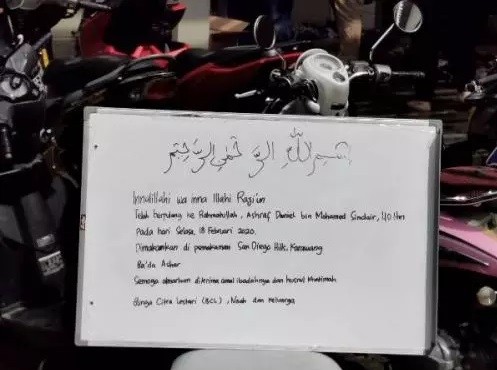 بسم الله الرحمن الرحيم
Innalillahi wa inna Illahi Raji'un
Telah berpulang ke Rahmatullah, Ashraf Daniel bin Mohamed Sinclair, 40 thn
Pada hari Selasa, 18 Februari 2020.
Dimakamkan di pemakaman San Diego Hills, Karawang
Ba'da Ashar
Semoga almarhum diterima amal ibadahnya dan husnul khotimah
Bunga Citra Lestari (BCL), Noah dan keluarga